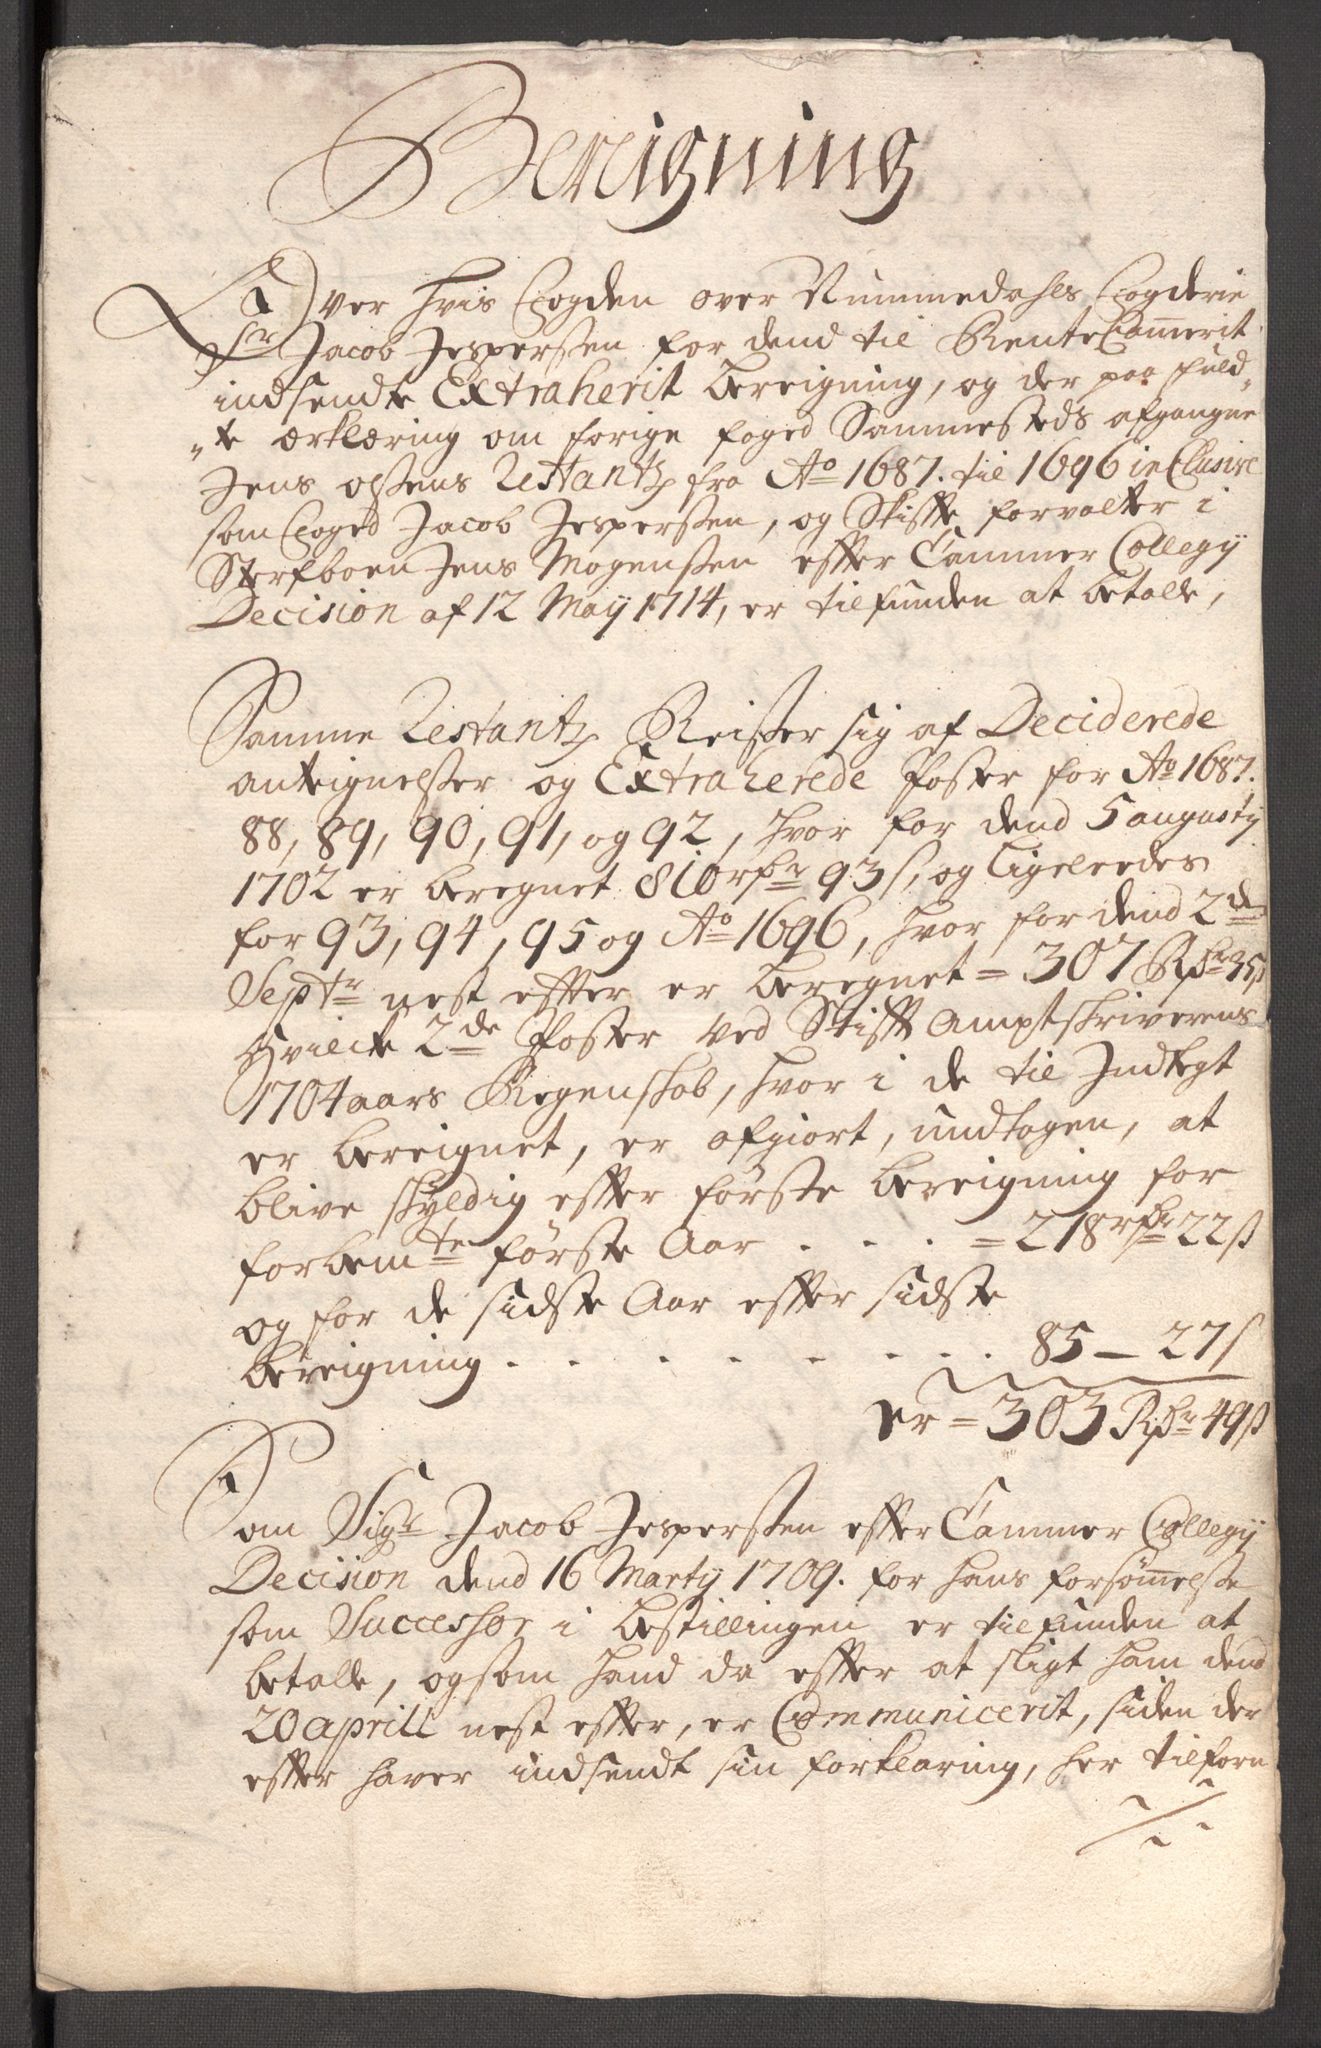 Bereigning
Over hvis Fogden over Nummedahls Fogderie
Sr Jacob Jespersen for dend til RenteCammerit
indsendte Extraherit bereigning, og der paa fuld„
„te erklæring om forige foged Sammesteds afgangne
Jens olsens Restantz fra Ao 1687. til 1696 inClusive
som Foged Jacob Jespersen, og Skifte forvalter i
Sterfboen Jens Mogensen effter Cammer Collegij
Decision af 12 Maij 1714, er tilfunden at betalle,
Samme Restantz Reiser sig af Deciderede
anteignelser og Extraherede Poster for Ao 1687.
88, 89, 90, 91, og 92, hvor for dend 5 augustij
1702 er beregnet 810 rdr 93 s, og ligeleedes
for 93, 94, 95 og Ao 1696, hvor for dend 2de
Septr nest effter er beregnet = 307 Rdr 35 s
Hvilcke 2de Poster ved Stifft Amptskriverens
1704 aars Regenskab, hvor i de til Indtegt
er bereignet, er afgiort, undtagen, at
blive skyldig effter förste bereigning for
forbemte förste Aar . . . = 218 rdr 22 s
og for de sidste Aar effter sidste
bereigning . . . . . . . . 85 – 27 s
er = 303 Rdr 49 s
Som Sigr Jacob Jespersen effter Cammer Collegij
Decision dend 16 Martij 1709. for hans forsömmelse
som Successor i bestillingen er tilfunden at
betalle, og som hand da effter at sligt ham dend
20 aprill nest effter, er Communicerit, siden der
effter haver indsendt sin forklaring, her tilforn